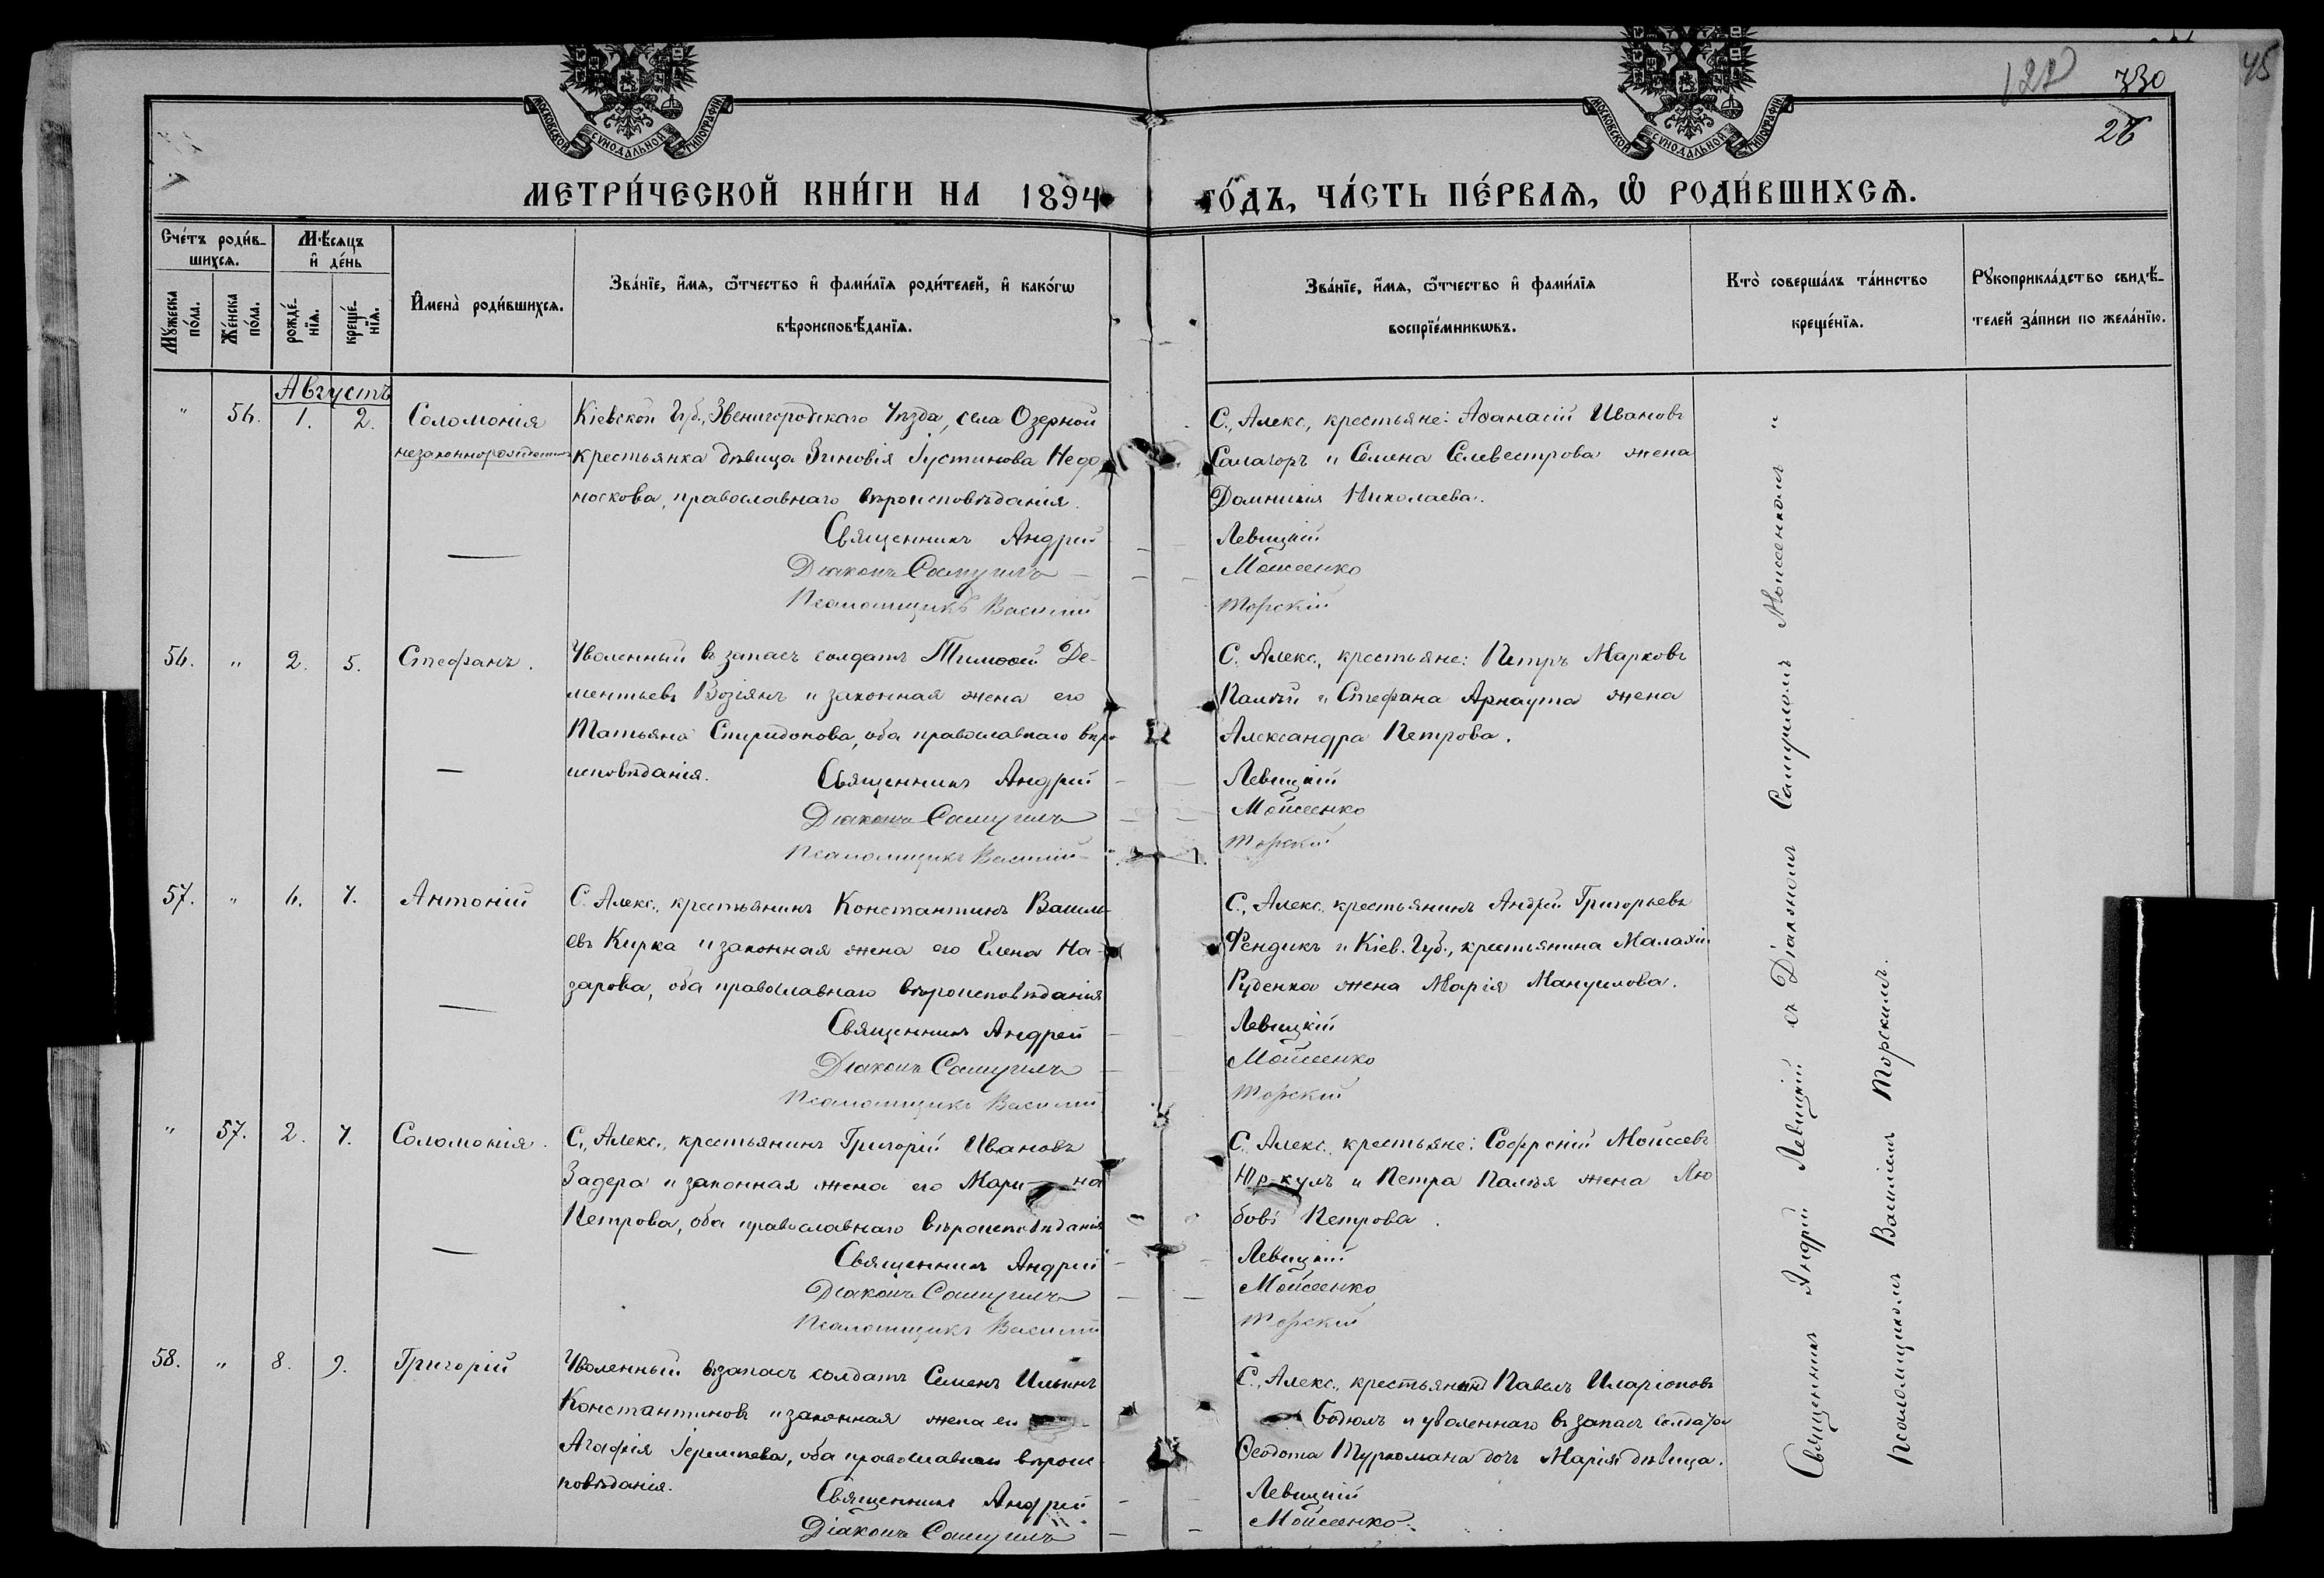 МОСКОВСКОЙ СѴНОДАЛЬНОЙ ТИПОГРАФІИ
МОСКОВСКОЙ СѴНОДАЛЬНОЙ ТИПОГРАФІИ
330
45
26
МЕТРИ́ЧЕСКОЙ КНИ́ГИ НА 1894 ГО́ДЪ, ЧА́СТЬ ПЕ́РВАѦ, Ѽ РОДИ́ВШИХСѦ.
Сче́тъ роди́в-
шихсѧ.
Мꙋ́жеска по́ла.
Же́нска по́ла.
Мѣ́сѧцъ
и҆ де́нь
рожде́нїѧ.
креще́нїѧ.
И҆мена̀ роди́вшихсѧ.
Зва́нїе, и҆́мѧ, ѻ҆́тчество и҆ фами́лїѧ роди́телей, и҆ како́гѡ
вѣроисповѣ́данїѧ.
Зва́нїе, и҆́мѧ, ѻ҆́тчество и҆ фами́лїѧ
воспрїе́мникѡвъ.
Кто̀ соверша́лъ та́инство
креще́нїѧ.
Рꙋкоприкла́дство свидѣ́-
телей за́писи по жела́нїю.
Августъ
" 56. 1. 2. Соломонія
незаконнорожденная
Кіевской Губ., Звенигородскаго Уѣзда, села Озерной
крестьянка дѣвица Зиновія Іустинова Недо
носкова, православнаго вѣроисповѣданія.
Священникъ Андрей
Діаконъ Самуилъ
Псаломщикъ Василій
С., Алекс., крестьяне: Аѳанасій Ивановъ
Саламоръ и Семена Селевестрова жена
Домникія Николаева.
Левицкій
Моисеенко
Торскій
56. " 2. 5. Стефанъ.
Уволенный въ запасъ солдатъ Тимоѳей Де-
ментьевъ Возіянъ и законная жена его
Татьяна Спиридонова, оба православнаго вѣро
исповѣданія.
Священникъ Андрей
Діаконъ Самуилъ
Псаломщикъ Василій
С. Алекс., крестьяне: Петръ Марковъ
Палѣй и Стефана Арнаута жена
Александра Петрова.
Левицкій
Моисеенко
Торскій
57. " 6. 7. Антоній
С. Алекс., крестьянинъ Константинъ Василь-
евъ Кирка и законная жена его Елена На-
зарова, оба православнаго вѣроисповѣданія
Священникъ Андрей
Діаконъ Самуилъ
Псаломщикъ Василій
С., Алекс., крестьянинъ Андрей Григорьевъ
Фендикъ и Кіев. Губ., крестьянина Малахія
Руденка жена Марія Мануилова.
Левицкій
Моисеенко
Торскій
" 57. 2. 7. Соломонія.
С., Алекс., крестьянинъ Григорій Ивановъ
Задера и законная жена его Мари-на
Петрова, оба православнаго вѣроисповѣданія
Священникъ Андрей
Діаконъ Самуилъ
Псаломщикъ Василій
С. Алекс. крестьяне: Софроній Моисеевъ
Юр-кулъ и Петра Палѣя жена Лю
бовь Петрова.
Левицкій
Моисеенко
Торскій
58. " 8. 9. Григорій
Уволенный въ запасъ солдатъ Семенъ Ильинъ
Константиновъ и законная жена его
Агафія Іереміева, оба православнаго вѣроис
повѣданія.
Священникъ Андрей
Діаконъ Самуилъ
С., Алекс., крестьянинъ Павелъ Иларіоновъ
Бодюлъ и уволеннаго въ запасъ солдата
Ѳеодота Туркомана дочь Марія дѣвица.
Левицкій
Моисеенко
Священникъ Андрей Левицкій съ Діакономъ Самуиломъ Моисеенкомъ и
Псаломщикомъ Василіемъ Торскимъ.